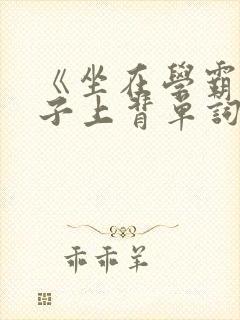 《坐在學霸
子上背單詞
乖乖羊